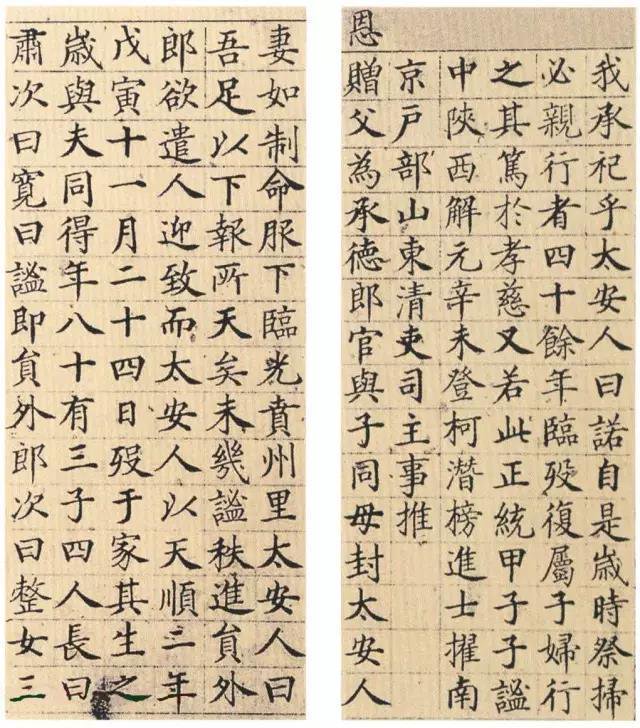 我承祀乎太安人曰諾自是歲時祭掃
必親行者四十餘年臨歿復屬子婦行
之其篤於孝慈又若此正統甲子子謐
中陝西解元辛未登柯潛榜進士擢南
京戶部山東清吏司主事推
恩贈父為承德郎官與子同母封太安人
妻如制命服下臨光賁州里太安人曰
吾足以下報所天矣未幾謐秩進貟外
郎欲遣人迎致而太安人以天順二年
戊寅十一月二十四日歿于家其生之
歲與夫同得年八十有三子四人長曰
肅次曰寬曰謐即貟外郎次曰整女三